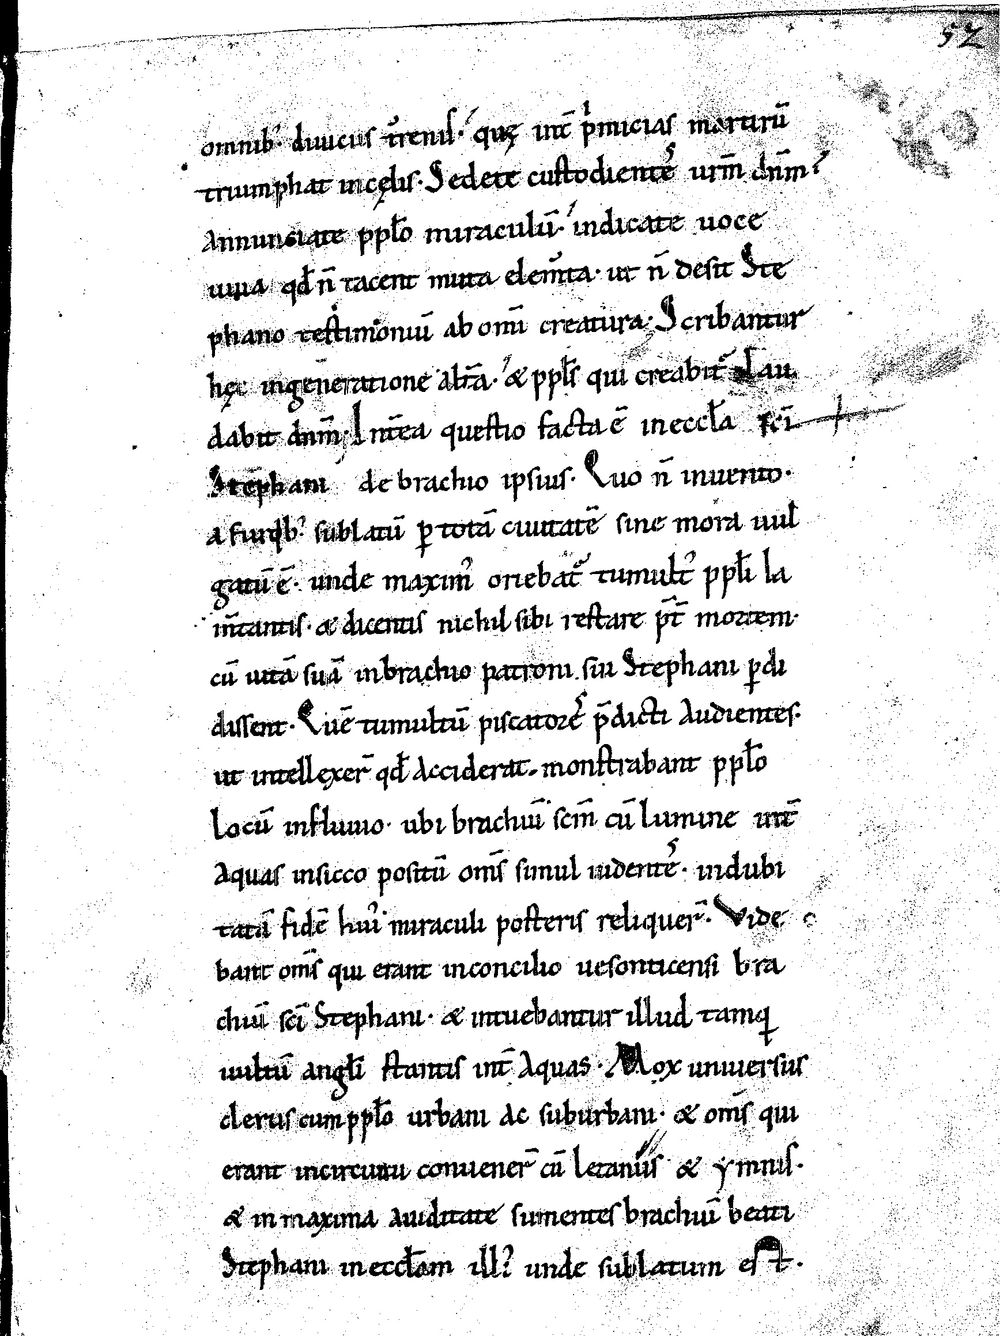 52
omnib; diuicus t̄renis. quę int̄ p̍micias martirū
triumphat incęlis. Sedete custodientes urm̄ dnm̄
Annunciate ppl̄o miraculū. indicate uoce
uiua qd̄ n̄ tacent muta elem̄ta. ut n̄ desit Ste
phano testimoniū ab omī creatura. Scribantur
hęc ingeneratione alt̄a. & ppl̄s qui creabit᷑ Lau
dabit dnm̄. Int̄ea questio facta ē ineccl̄a sc̄i
Stephani de brachio ipsius. Quo n̄ inuento.
a furib; sublatū ꝑ totā ciuitatē sine mora uul
gatū ē. unde maxim᷒ oriebat᷑ tumult᷒ ppl̄i la
m̄tantis. & dicentis nichil sibi restare p̄t mortem.
cū uitā suā inbrachio patroni sui Stephani ꝑdi
dissent. Quē tumultū piscatores p̄dicti Audientes.
ut intellexer̄ qd̄ Acciderat. monstrabant ppl̄o
Locū influuio. ubi brachiū scm̄ cū lumine int̄
Aquas insicco positū om̄s simul uidentes. indubi
tatā fidē hui᷒ miraculi posteris reliquer̄. Vide
bant om̄s qui erant inconcilio uesonticensi bra
chiū sc̄i Stephani. & intuebantur illud tamq̄
uultū angl̄i stantis int̄ Aquas. Mox uniuersus
clerus cum ppl̄o urbani ac suburbani. & om̄s qui
erant incircuitu conuener̄ cū letaniis & ymnis.
& in maxima auiditate sumentes brachiū beati
Stephani ineccl̄am unde sublatum est.